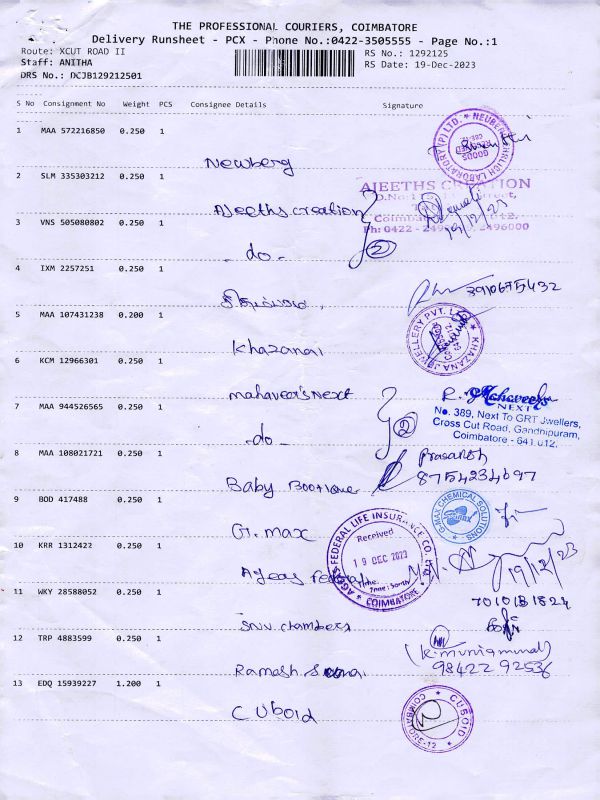 THE PROFESSIONAL COURIERS, COIMBATORE
Delivery Runsheet - PCX - Phone No.:0422-3505555 - Page No.:1
Route: XCUT ROAD II
RS No.: 1292125
Staff: ANITHA
RS Date: 19-Dec-2023
DRS No.: DCJB129212501
S No Consignment No Weight PCS Consignee Details Signature
1 MAA 572216850 0.250 1
Newberg
2 SLM 335303212 0.250 1
AJEETHS CREATION
AJeeths creation
19/12/23
3 VNS 505080802 0.250 1
Ph: 0422 - 6496000
- do -
2
4 IXM 2257251 0.250 1
5 MAA 107431238 0.200 1
KHAZANA JEWELLERY PVT. LTD
Khazanai
6 KCM 12966301 0.250 1
mahaveer's Next
R. Mahaveer's
NEXT
7 MAA 944526565 0.250 1
No. 389, Next To GRT Jwellers,
Cross Cut Road, Gandhipuram,
Coimbatore - 641 012.
- do -
2
8 MAA 108021721 0.250 1
Prasanth
8754234097
Baby Bootique
9 BOD 417488 0.250 1
G-MAX CHEMICAL SOLUTIONS
G. max
10 KRR 1312422 0.250 1
AGEAS FEDERAL LIFE INSURANCE CO. LTD.
Received
19 DEC 2023
Time:
Zone: South
COIMBATORE
Ageas Federal
19/12/23
11 WKY 28588052 0.250 1
SNV. chambers
12 TRP 4883599 0.250 1
(K. muniammal)
98422 92536
Ramesh
13 EDQ 15939227 1.200 1
CUBOID
COIMBATORE-12
CUboid